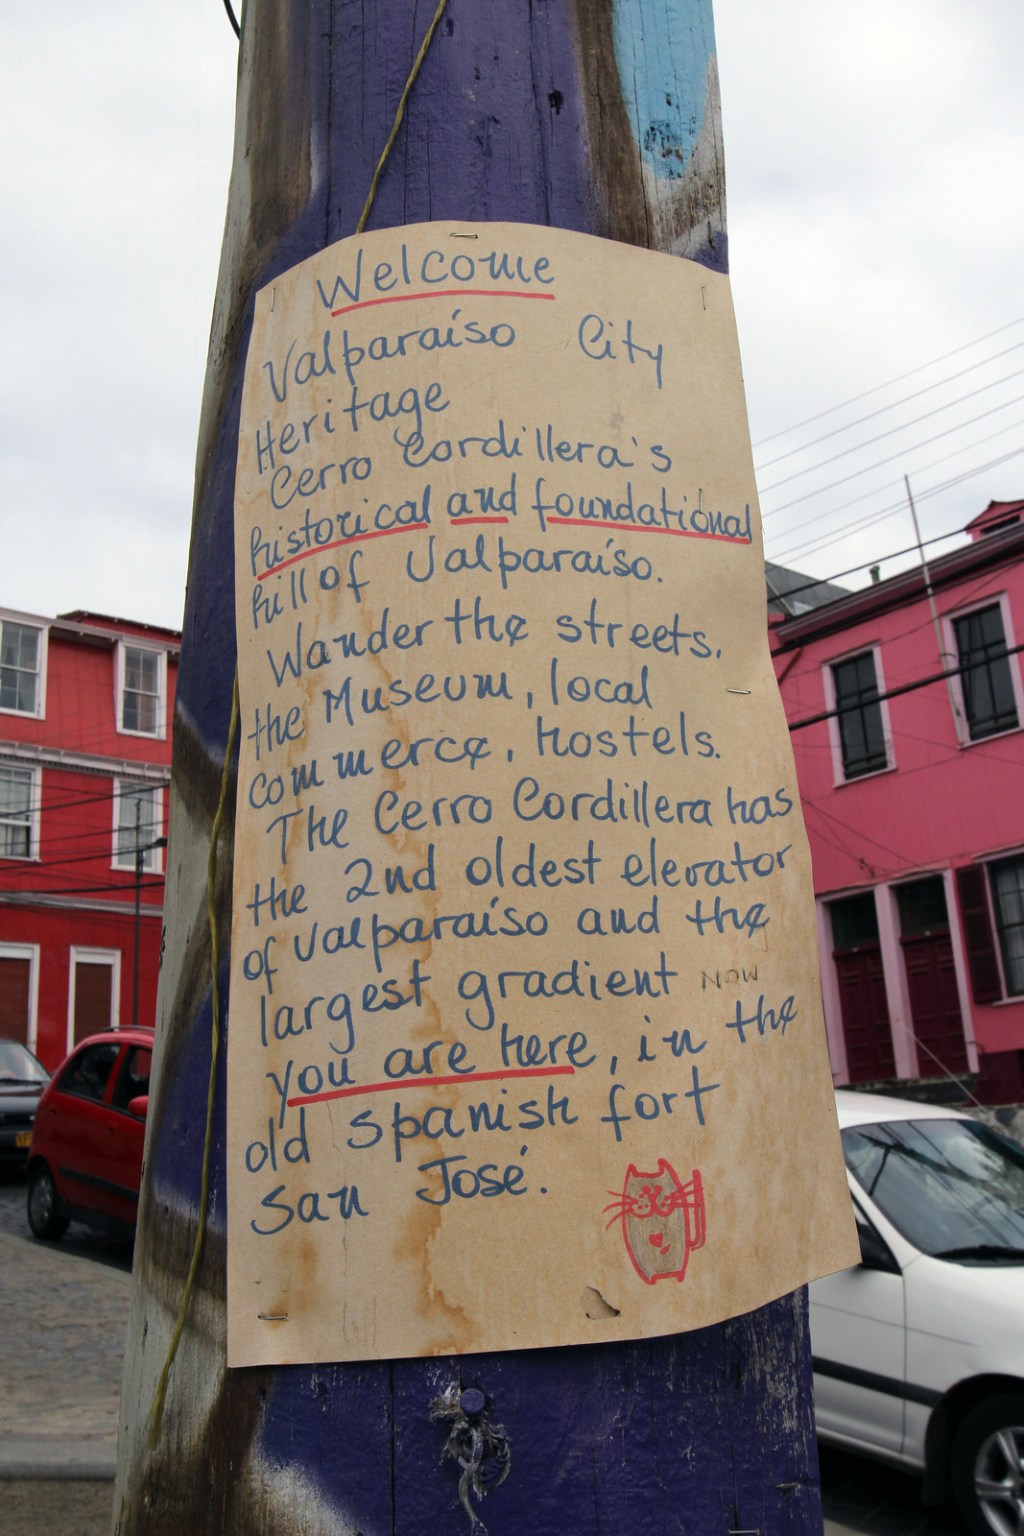 Welcome
Valparaíso City
Heritage
Cerro Cordillera's
historical and foundational
hill of Valparaíso.
Wander the streets,
the Museum, local
commerce, hostels.
The Cerro Cordillera has
the 2nd oldest elevator
of Valparaíso and the
largest gradient NOW
you are here, in the
old spanish fort
San José.